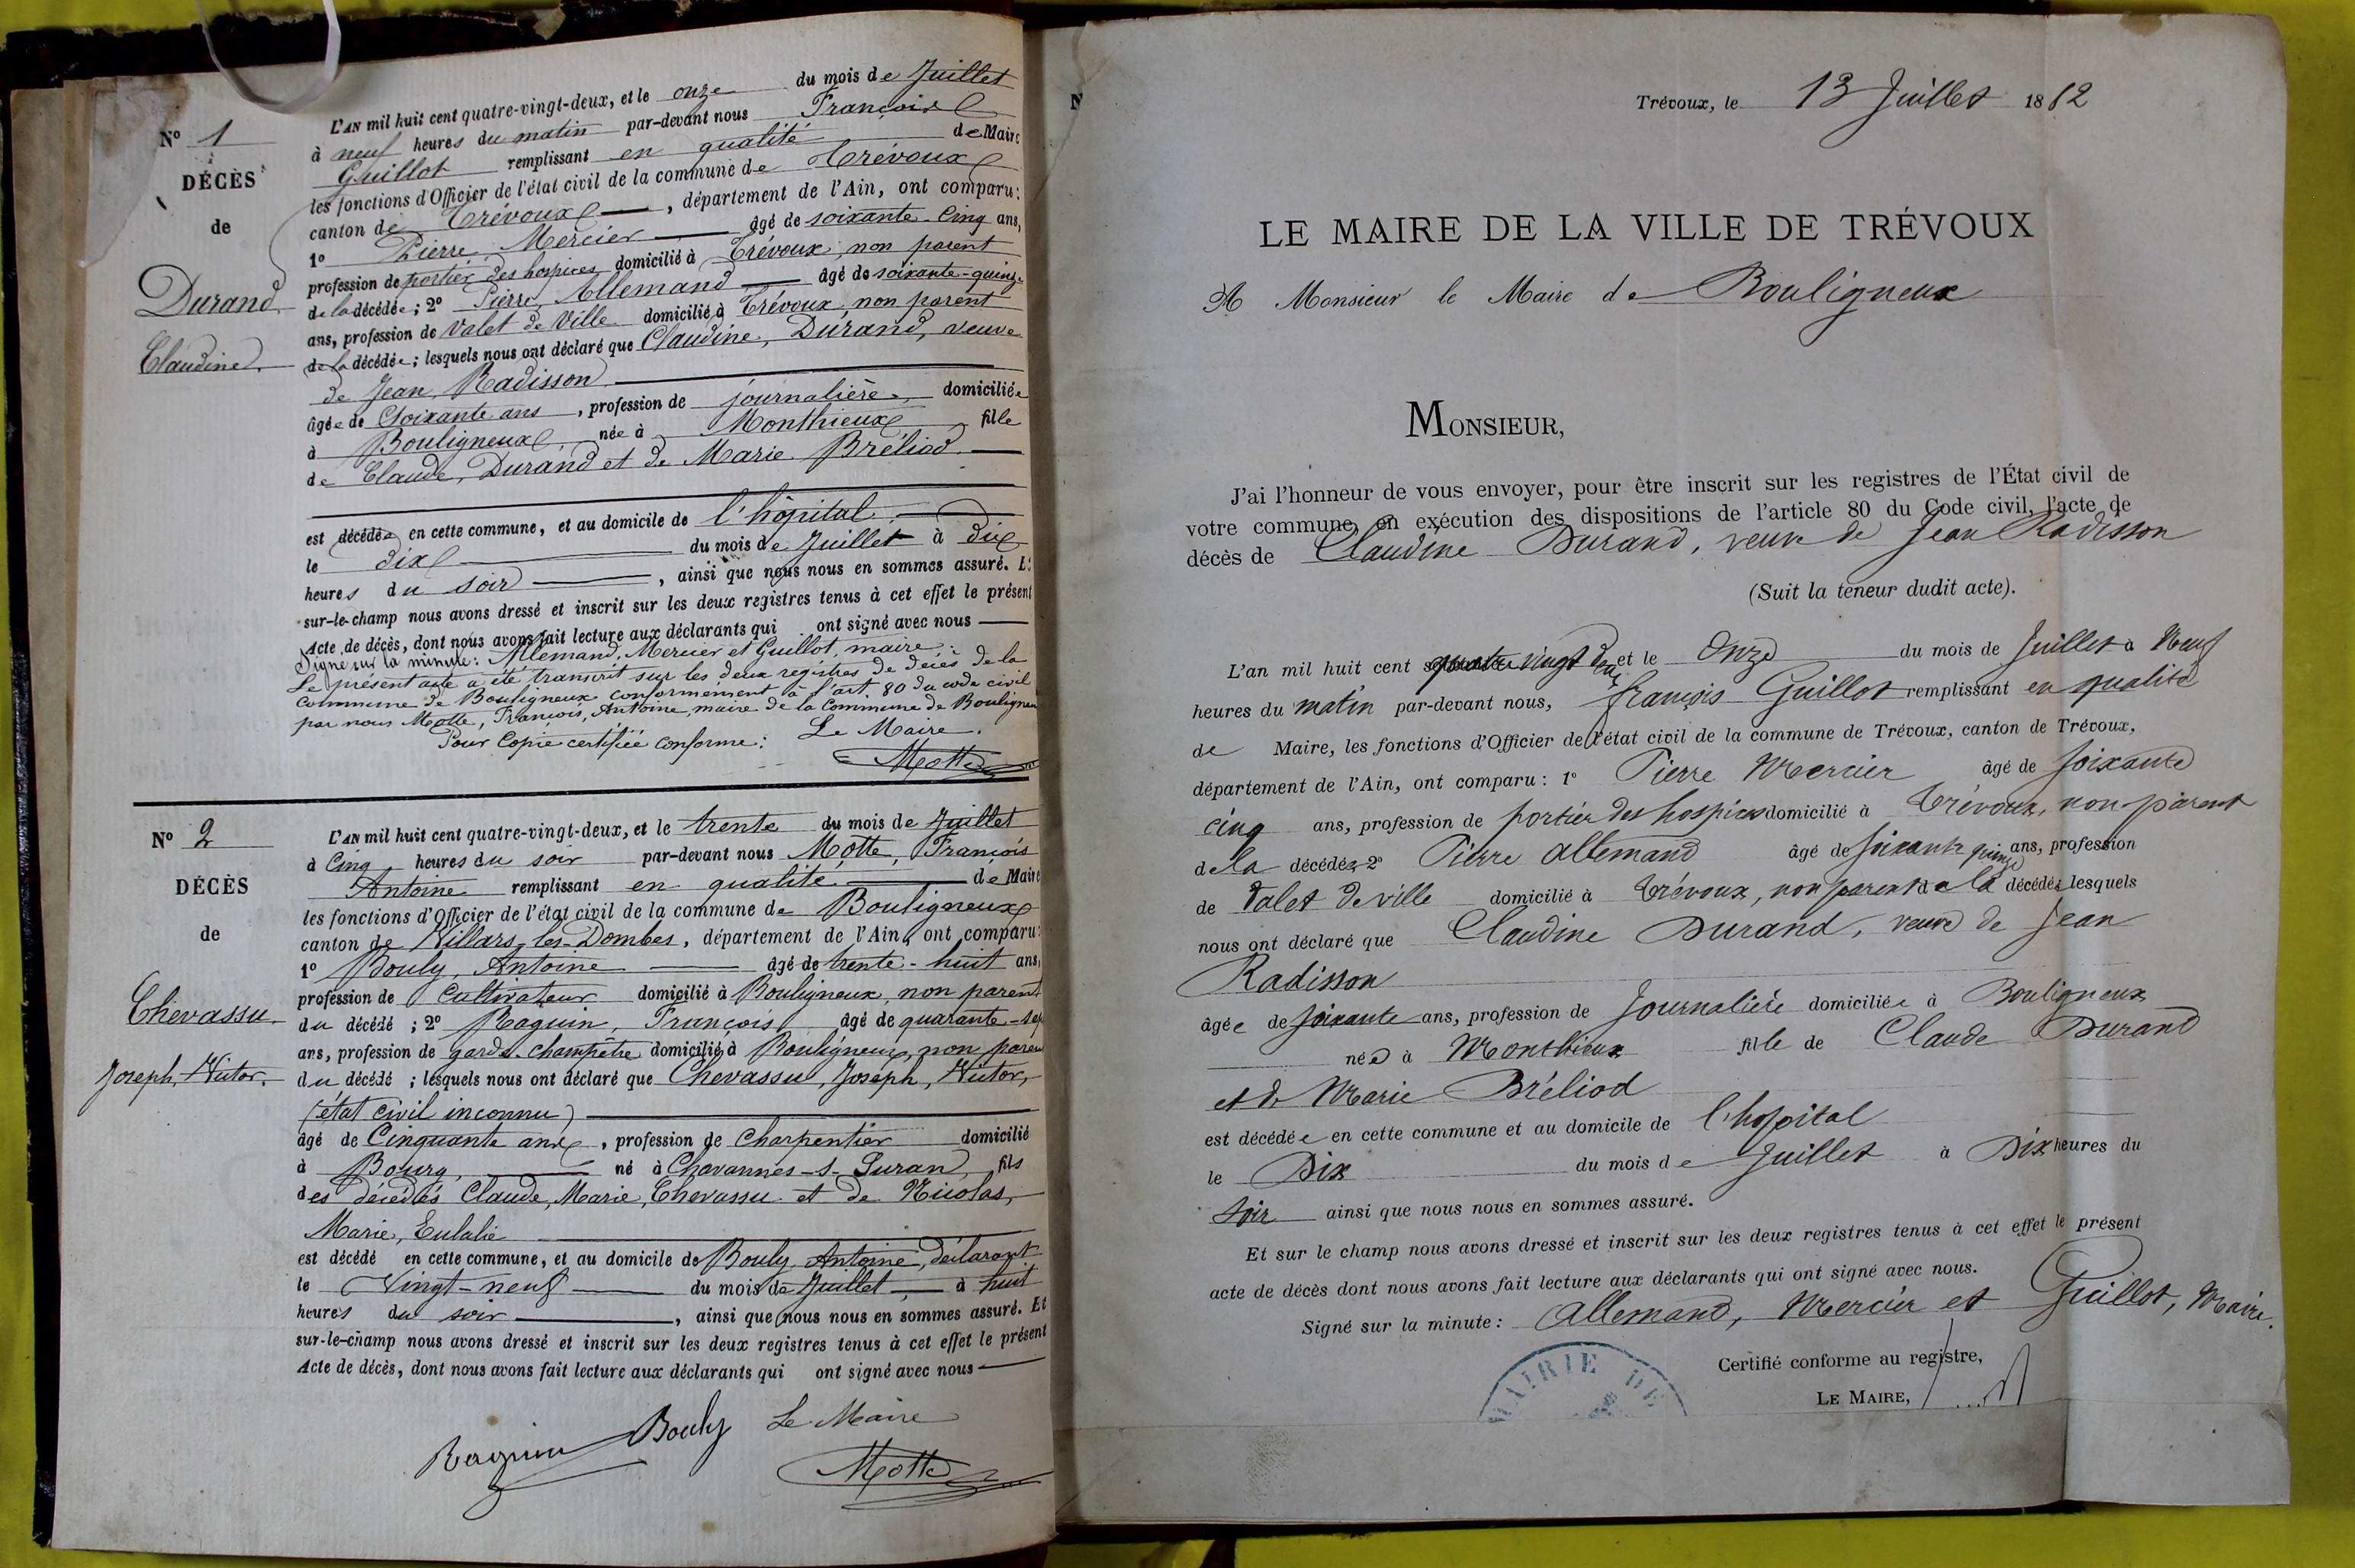 N° 1
DÉCÈS
de
Durand
Claudine.
L'AN mil huit cent quatre-vingt-deux, et le onze du mois de Juillet
à neuf heures du matin par-devant nous François
Guillot remplissant en qualité de Maire
les fonctions d'Officier de l'état civil de la commune de Trévoux
canton de Trévoux, département de l'Ain, ont comparu:
1° Pierre Mercier âgé de soixante-cinq ans,
profession de portier des hospices domicilié à Trévoux, non parent
de la décédée; 2° Pierre Allemand âgé de soixante-quinze
ans, profession de Valet de Ville domicilié à Trévoux, non parent
de la décédée; lesquels nous ont déclaré que Claudine, Durand, veuve
de Jean Radisson
âgée de Soixante ans, profession de journalière, domiciliée
à Bouligneux née à Monthieux fille
de Claude, Durand et de Marie Bréliod.
est décédée en cette commune, et au domicile de l'hôpital.
le dix du mois de Juillet à dix
heures du soir, ainsi que nous nous en sommes assuré. Et
sur-le-champ nous avons dressé et inscrit sur les deux registres tenus à cet effet le présent
Acte de décès, dont nous avons fait lecture aux déclarants qui ont signé avec nous
Signé sur la minute: Allemand, Mercier et Guillot, maire.
Le présent acte a été transcrit sur les deux registres de décès de la
Commune de Bouligneux conformement à l'art. 80 du code civil
par nous Motte, François, Antoine, maire de la Commune de Bouligneux
Pour Copie certifiée conforme: Le Maire.
Motte
N° 2
DÉCÈS
de
Chevassu.
Joseph, Victor.
L'AN mil huit cent quatre-vingt-deux, et le trente du mois de Juillet
à Cinq heures du soir par-devant nous Motte, François
Antoine remplissant en qualité de Maire
les fonctions d'Officier de l'état civil de la commune de Bouligneux
canton de Villars-les-Dombes, département de l'Ain, ont comparu:
1° Bouly, Antoine âgé de trente-huit ans,
profession de Cultivateur domicilié à Bouligneux, non parent
du décédé; 2° Raguin, François âgé de quarante-sept
ans, profession de garde-champêtre domicilié à Bouligneux, non parent
du décédé; lesquels nous ont déclaré que Chevassu, Joseph, Victor,
(état civil inconnu)
âgé de Cinquante ans, profession de Charpentier domicilié
à Bourg, né à Chavannes-s-Suran, fils
des décédés Claude, Marie, Chevassu et de Nicolas,
Marie, Eulalie
est décédé en cette commune, et au domicile de Bouly, Antoine, déclarant
le Vingt-neuf du mois de Juillet, à huit
heures du soir, ainsi que nous nous en sommes assuré. Et
sur-le-champ nous avons dressé et inscrit sur les deux registres tenus à cet effet le présent
Acte de décès, dont nous avons fait lecture aux déclarants qui ont signé avec nous
Raguin Bouly Le Maire
Motte
Trévoux, le 13 Juillet 1882
LE MAIRE DE LA VILLE DE TRÉVOUX
A Monsieur le Maire de Bouligneux
MONSIEUR,
J'ai l'honneur de vous envoyer, pour être inscrit sur les registres de l'État civil de
votre commune, en exécution des dispositions de l'article 80 du Code civil, l'acte de
décès de Claudine Durand, veuve de Jean Radisson
(Suit la teneur dudit acte).
L'an mil huit cent quatre vingt deux et le Onze du mois de Juillet à Neuf
heures du matin par-devant nous, François Guillot remplissant en qualité
de Maire, les fonctions d'Officier de l'état civil de la commune de Trévoux, canton de Trévoux,
département de l'Ain, ont comparu: 1° Pierre Mercier âgé de soixante
cinq ans, profession de portier des hospices domicilié à Trévoux, non parent
de la décédée 2° Pierre Allemand âgé de soixante quinze ans, profession
de Valet de ville domicilié à Trévoux, non parent de la décédée lesquels
nous ont déclaré que Claudine Durand, veuve de Jean
Radisson
âgée de soixante ans, profession de Journalière domiciliée à Bouligneux
née à Monthieux fille de Claude Durand
et de Marie Bréliod
est décédée en cette commune et au domicile de l'hospital
le Dix du mois de Juillet à Dix heures du
soir ainsi que nous nous en sommes assuré.
Et sur le champ nous avons dressé et inscrit sur les deux registres tenus à cet effet le présent
acte de décès dont nous avons fait lecture aux déclarants qui ont signé avec nous.
Signé sur la minute: Allemand, Mercier et Guillot, Maire.
MAIRIE DE
Certifié conforme au registre,
LE MAIRE,